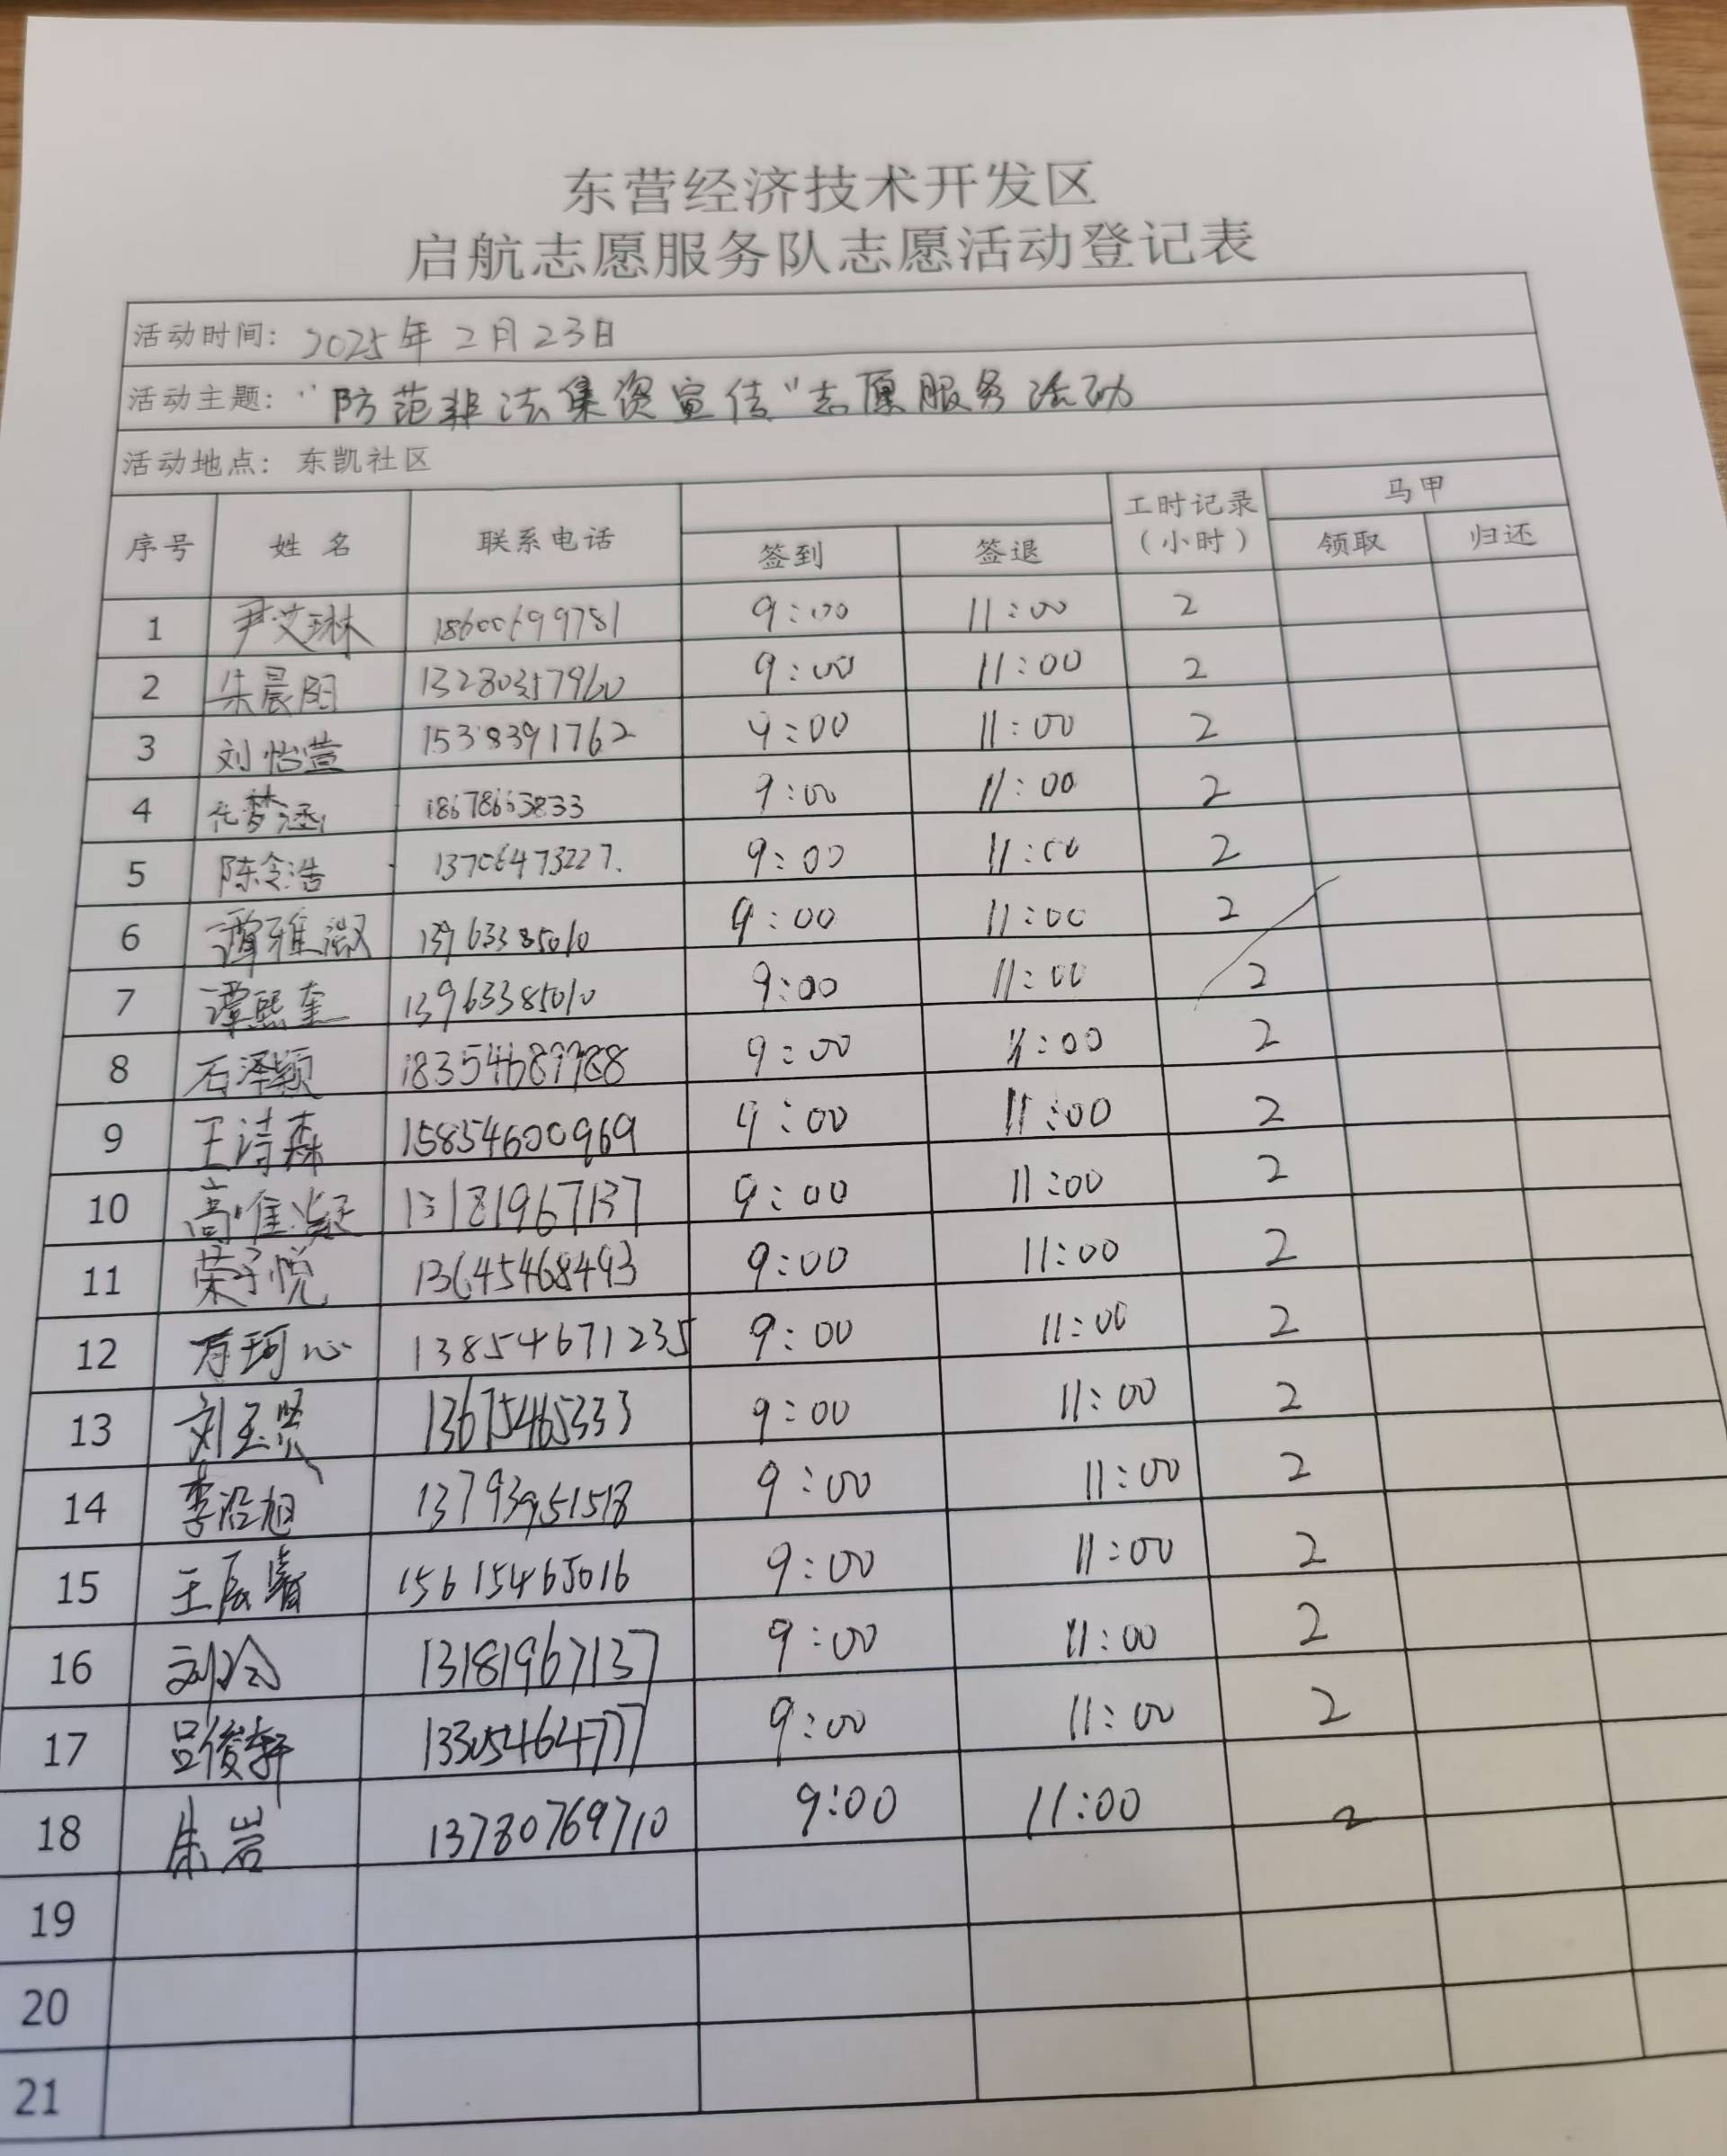 东营经济技术开发区
启航志愿服务队志愿活动登记表
活动时间: 2025年2月23日
活动主题: "防范非法集资宣传"志愿服务活动
活动地点: 东凯社区
序号 姓名 联系电话 签到 签退 工时记录(小时) 马甲 领取 归还
1 尹艾琳 18600699781 9:00 11:00 2
2 朱晨阳 13280357960 9:00 11:00 2
3 刘怡萱 15318391762 9:00 11:00 2
4 代梦涵 18678663833 9:00 11:00 2
5 陈令浩 13706473227. 9:00 11:00 2
6 谭雅淑 13963385010 9:00 11:00 2
7 谭熙奎 13963385010 9:00 11:00 2
8 石泽颖 18354689988 9:00 11:00 2
9 王诗森 15854600969 9:00 11:00 2
10 高唯凝 13181967137 9:00 11:00 2
11 荣子悦 13645468493 9:00 11:00 2
12 珂心 13854671235 9:00 11:00 2
13 刘玉贤 13675465333 9:00 11:00 2
14 李沿旭 13793951518 9:00 11:00 2
15 王辰睿 15615465016 9:00 11:00 2
16 刘冷 13181967137 9:00 11:00 2
17 吕俊轩 13305464777 9:00 11:00 2
18 朱岩 13780769710 9:00 11:00 2
19
20
21